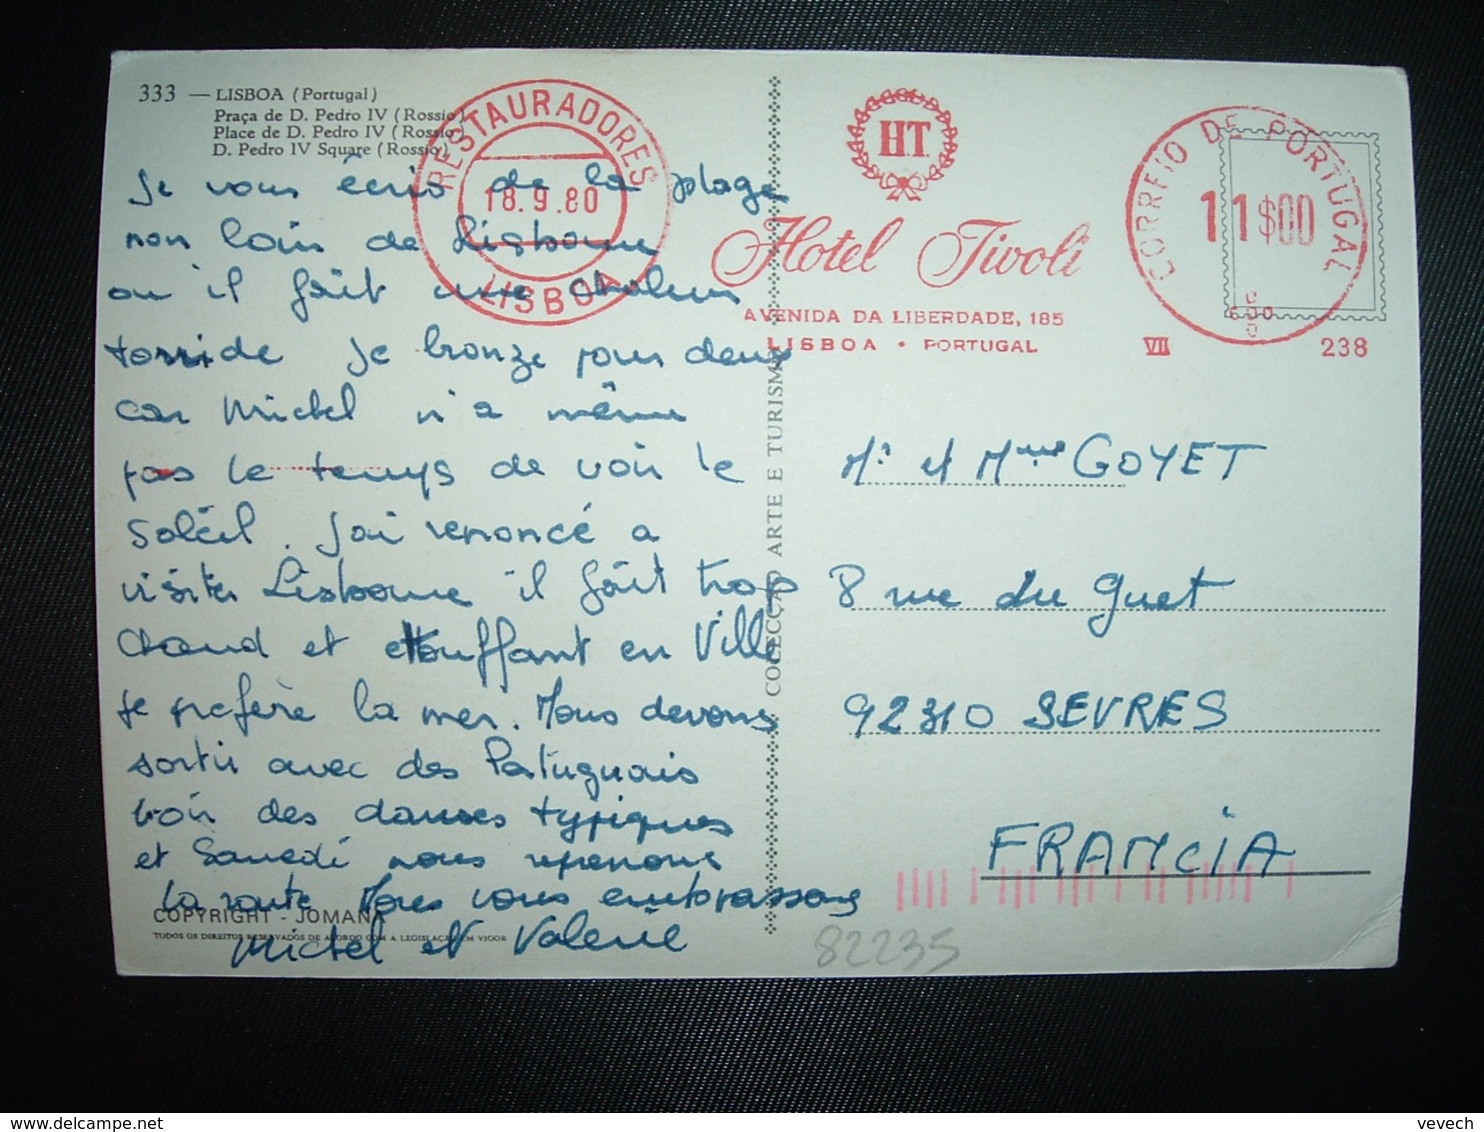 333 — LISBOA (Portugal)
Praça de D. Pedro IV (Rossio)
Place de D. Pedro IV (Rossio)
D. Pedro IV Square (Rossio)
RESTAURADORES
18.9.80
LISBOA
HT
Hotel Tivoli
AVENIDA DA LIBERDADE, 185
LISBOA • PORTUGAL
CORREIO DE PORTUGAL
11$00
VII
238
Je vous écris de la plage
non loin de Lisbonne
ou il fait une chaleur
torride Je bronze pour deux
car Michel n'a même
pas le temps de voir le
soleil. J'ai renoncé a
visiter Lisbonne il fait trop
chaud et etouffant en Ville
je préfère la mer. Nous devons
sortir avec des Portuguais
voir des danses typiques
et Samedi nous reprenons
la route Nous vous embrassons
Michel et Valerie
COPYRIGHT - JOMANA
TODOS OS DIREITOS RESERVADOS DE ACORDO COM A LEGISLAÇÃO EM VIGOR
COLECÇÃO ARTE E TURISMO
Mr et Mme GOYET
8 rue du Guet
92310 SEVRES
FRANCIA
82235
vevech